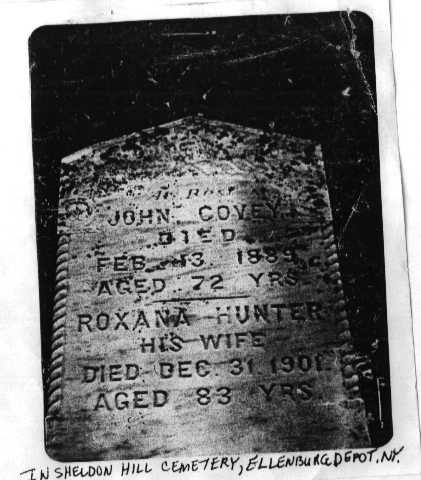 At Rest
JOHN COVEY
DIED
FEB. 13. 1889
AGED 72 YRS.
ROXANA HUNTER
HIS WIFE
DIED DEC. 31. 1901.
AGED 83 YRS.
IN SHELDON HILL CEMETERY, ELLENBURG DEPOT. NY.